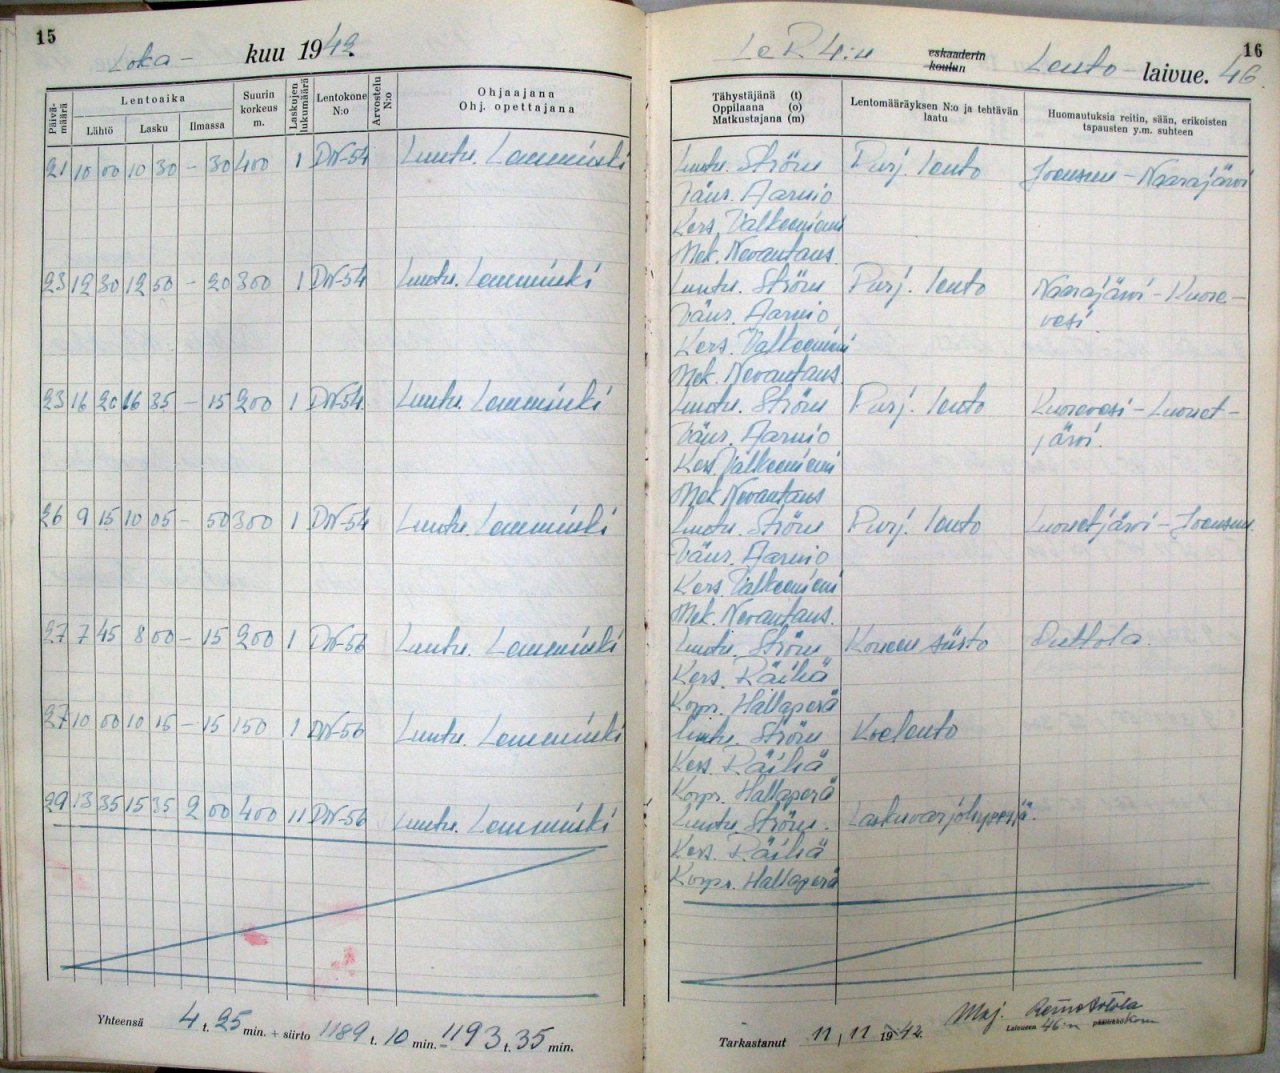 15
Loka- kuu 1942
Päivämäärä
Lentoaika
Lähtö Lasku Ilmassa
Suurin korkeus m.
Laskujen lukumäärä
Lentokone N:o
Arvostelu N:o
Ohjaajana
Ohj. opettajana
21 10 00 10 30 – 30 400 1 DN-54 Luutn. Lamminki
23 12 30 12 50 – 20 300 1 DN-54 Luutn. Lamminki
23 16 20 16 35 – 15 200 1 DN-54 Luutn. Lamminki
26 9 15 10 05 – 50 300 1 DN-54 Luutn. Lamminki
27 7 45 8 00 – 15 200 1 DN-56 Luutn. Lamminki
27 10 00 10 15 – 15 150 1 DN-56 Luutn. Lamminki
29 13 35 15 35 2 00 400 11 DN-56 Luutn. Lamminki
Yhteensä 4 t. 25 min. + siirto 1189 t. 10 min. = 1193 t. 35 min.
16
LeR 4:n eskaaderin koulun Lento- laivue. 46
Tähystäjänä (t)
Oppilaana (o)
Matkustajana (m)
Lentomääräyksen N:o ja tehtävän laatu
Huomautuksia reitin, sään, erikoisten tapausten y.m. suhteen
Luutn. Ström Purj. lento Joensuu – Naarajärvi
Vänr. Aarnio
Kers. Valkeeniemi
Mek. Nevantaus.
Luutn. Ström Purj. lento Naarajärvi – Kuore-
Vänr. Aarnio vesi.
Kers. Valkeeniemi
Mek. Nevantaus.
Luutn. Ström Purj. lento Kuorevesi – Luonet-
Vänr. Aarnio järvi.
Kers. Valkeeniemi
Mek. Nevantaus
Luutn. Ström Purj. lento Luonetjärvi – Joensuu.
Vänr. Aarnio
Kers. Valkeeniemi
Mek. Nevantaus.
Luutn. Ström Koneen siirto Onttola.
Kers. Räihä
Korpr. Hallaperä
Luutn. Ström Koelento
Kers. Räihä
Korpr. Hallaperä
Luutn. Ström. Laskuvarjohyppyjä.
Kers. Räihä
Korpr. Hallaperä
Tarkastanut 11 / 11 1942.
Maj.
Laivueen 46:n päällikkö kom